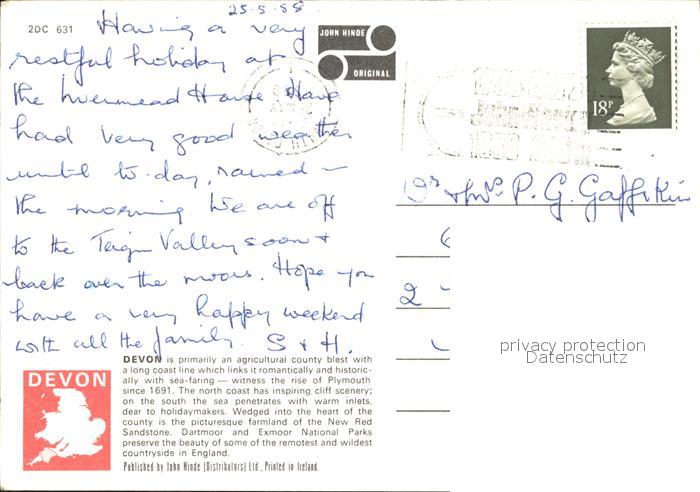 25-5-88
2DC 631
Having a very
restful holiday at
the Livermead House Have
had very good weather
until to-day, rained in
the morning We are off
to the Teign Valley soon +
back over the moors. Hope you
have a very happy weekend
with all the family. S + H.
JOHN HINDE
ORIGINAL
18P
P. G. Gaffikin
2
privacy protection
Datenschutz
DEVON
DEVON is primarily an agricultural county blest with
a long coast line which links it romantically and historic-
ally with sea-faring — witness the rise of Plymouth
since 1691. The north coast has inspiring cliff scenery;
on the south the sea penetrates with warm inlets,
dear to holidaymakers. Wedged into the heart of the
county is the picturesque farmland of the New Red
Sandstone. Dartmoor and Exmoor National Parks
preserve the beauty of some of the remotest and wildest
countryside in England.
Published by John Hinde (Distributors) Ltd., Printed in Ireland.